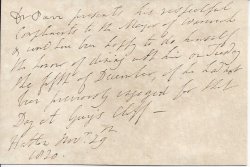 Dr Parr presents his respectful
Compliments to the Mayor of Warwick
& would have been happy to do himself
the honor of dining with him on Tuesday
the fifth of December, if he had not
been previously engaged for that
Day at Guy's Cliff —
Hatton Novr. 29th
1820.